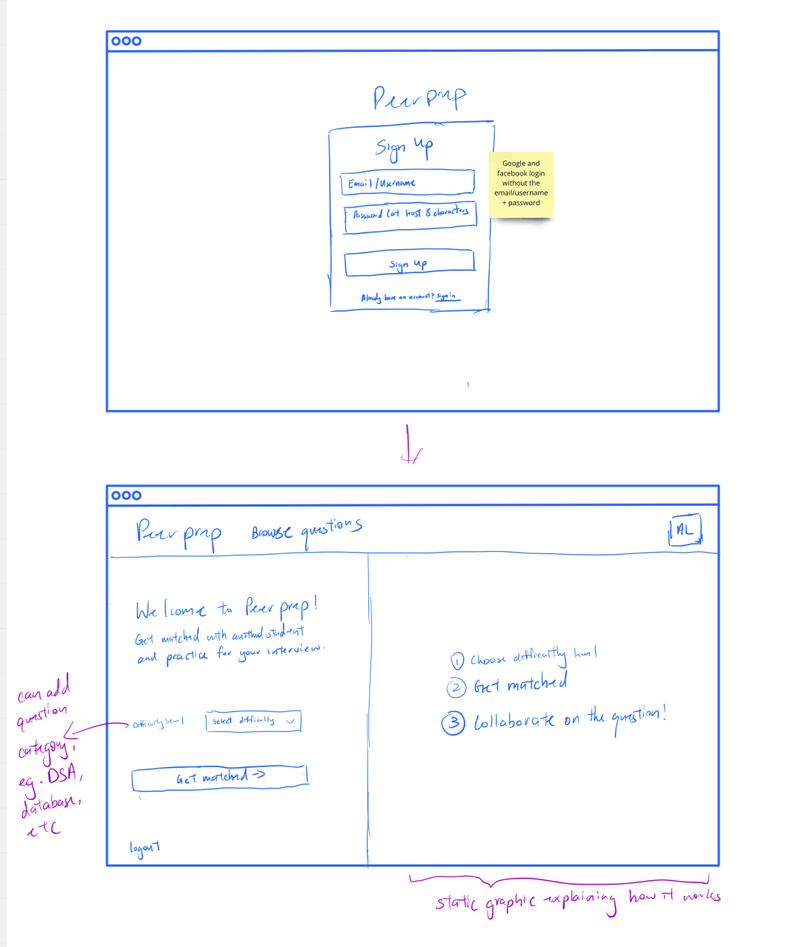 Peerprep
Sign Up
Email/Username
Password (at least 8 characters)
Sign Up
Already have an account? Sign in
Google and
facebook login
without the
email/username
+ password
Peerprep
Browse questions
AL
Welcome to Peerprep!
Get matched with another student
and practice for your interview.
Difficulty level
Select difficulty
Get matched →
logout
1 Choose difficulty level
2 Get matched
3 Collaborate on the question!
can add
question
category,
eg. DSA,
database,
etc
static graphic explaining how it works